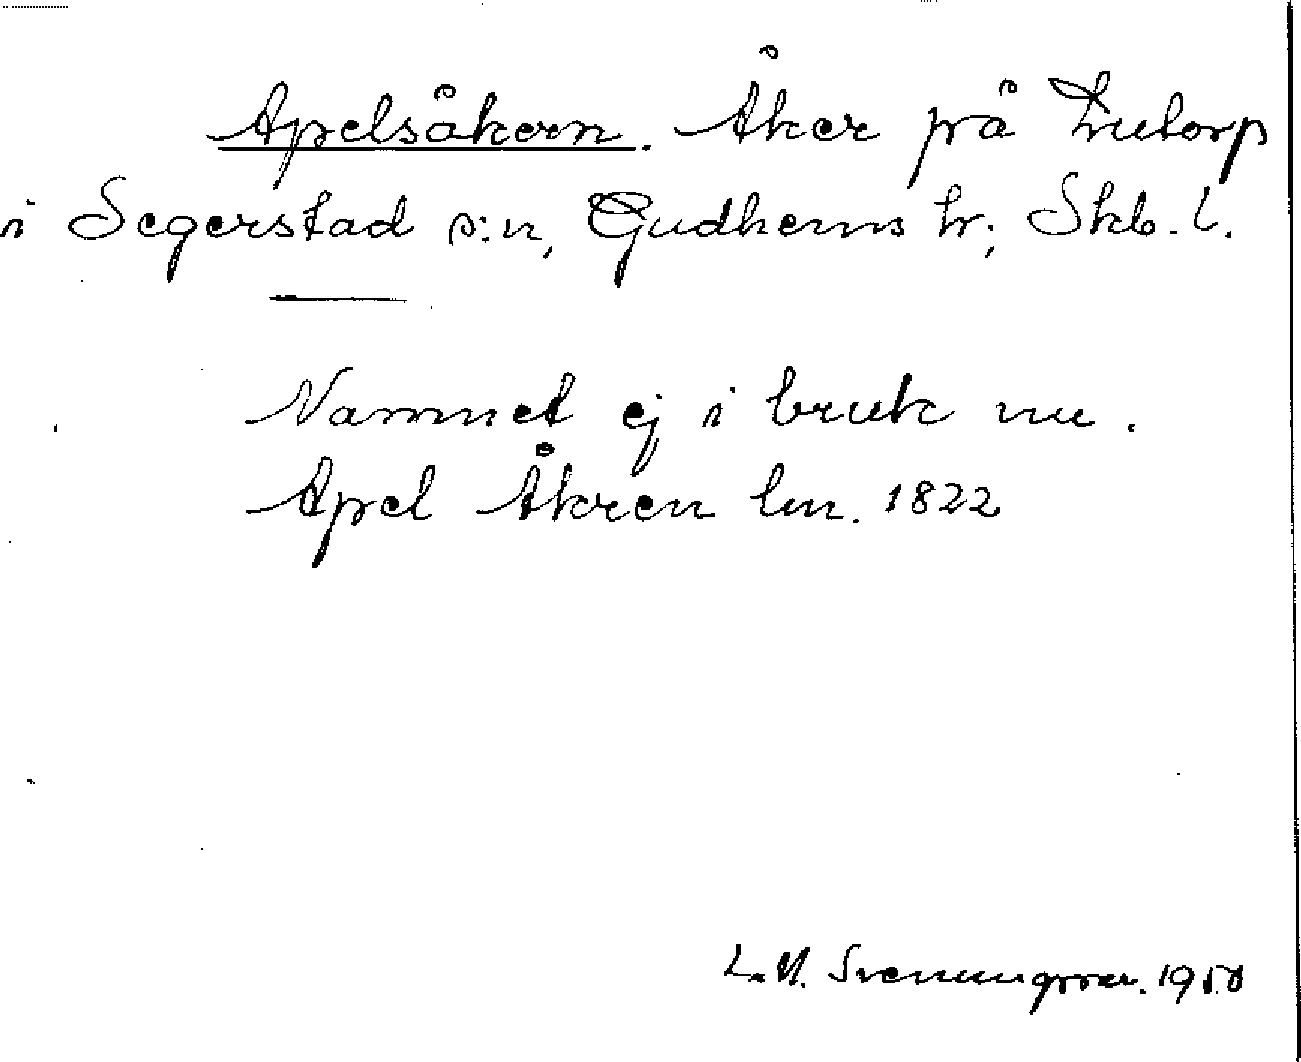 Apelsåkern. Åker på Lutorp
i Segerstad s:n, Gudhems hr; Skb. l.
Namnet ej i bruk nu.
Apel Åkren lm. 1822
L.M. Svenungsson. 1950